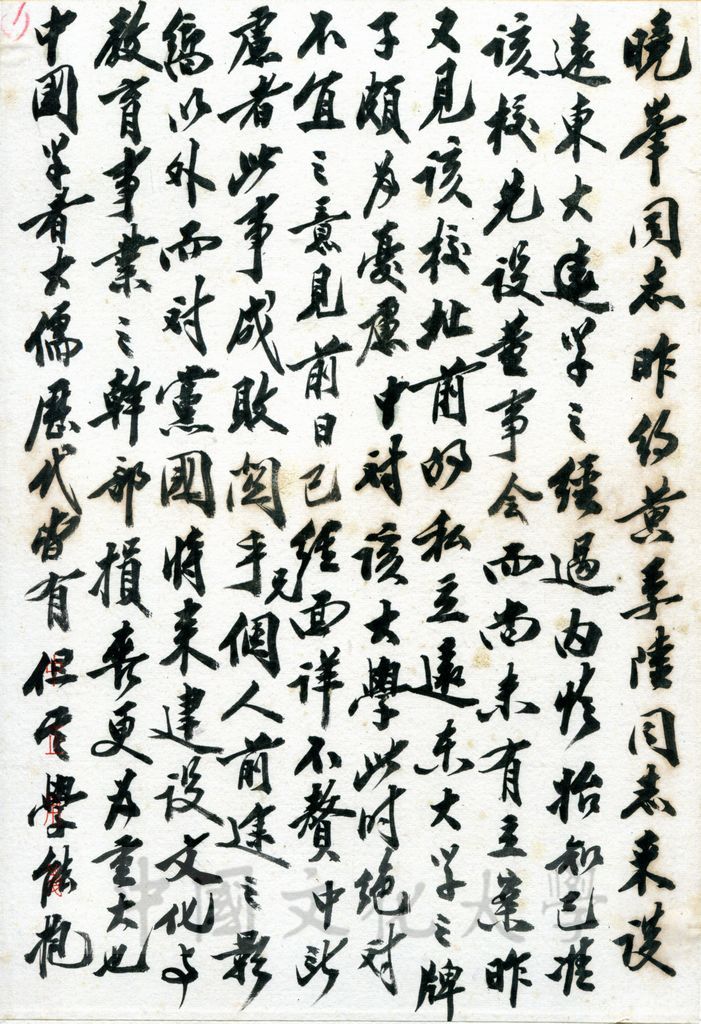 曉峯同志昨約黃季陸同志來談
遠東大学之經過内容始知已准
該校先設董事会而尚未有立案昨
又見該校址前的私立遠東大学之牌
子頗為憂慮中對該大學此时絶对
不宜之意見前日已經面詳不贅中所
慮者此事成敗關乎兄個人前途之影
響以外而对黨國將來建設文化与
教育事業之幹部損喪更為重大也
中國学者大儒歷代皆有但其學能抱
中正用箋
中國文化大學